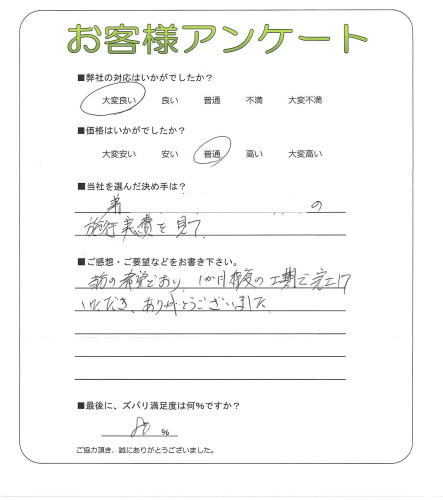 お客様アンケート
■弊社の対応はいかがでしたか?
大変良い 良い 普通 不満 大変不満
■価格はいかがでしたか?
大変安い 安い 普通 高い 大変高い
■当社を選んだ決め手は?
の
施行実費を見て
■ご感想・ご要望などをお書き下さい。
の希望どおり、1か月程度の工期で完工
いただき、ありがとうございました
■最後に、ズバリ満足度は何%ですか?
80 %
ご協力頂き、誠にありがとうございました。